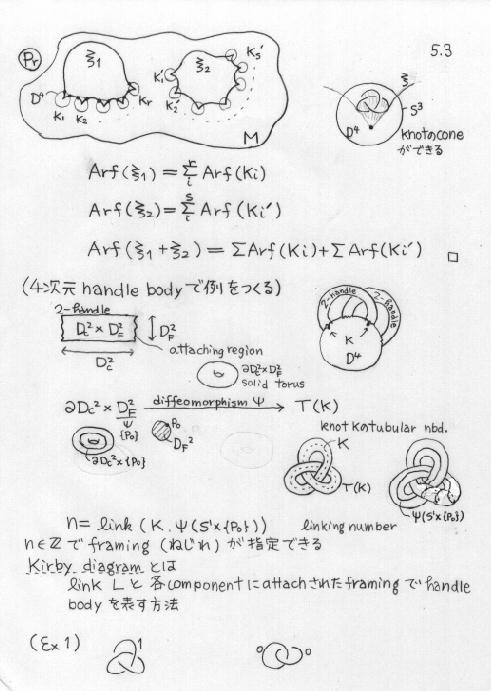 5.3
Pr
ξ1
ξ2
D⁴
K1
K2
Kr
K1'
K2'
Ks'
M
ξ
S³
D⁴
knotのcone
ができる
Arf(ξ1) = Σ^r_i Arf(Ki)
Arf(ξ2) = Σ^s_i Arf(Ki')
Arf(ξ1+ξ2) = ΣArf(Ki)+ΣArf(Ki') □
(4次元 handle bodyで例をつくる)
2-handle
Dc² × DF²
DF²
Dc²
attaching region
∂Dc²×DF²
solid torus
2-handle
2-handle
K
D⁴
∂Dc² × DF² diffeomorphism Ψ → T(K)
Ψ
{P0}
∂Dc²×{P0}
P0
DF²
knot Kのtubular nbd.
K
T(K)
Ψ(S¹×{P0})
n= link (K. Ψ(S¹×{P0})) linking number
n∈Z で framing (ねじれ) が指定できる
Kirby diagram とは
link L と 各componentにattachされたframing で handle
body を表す方法
(Ex 1)
1
0
0